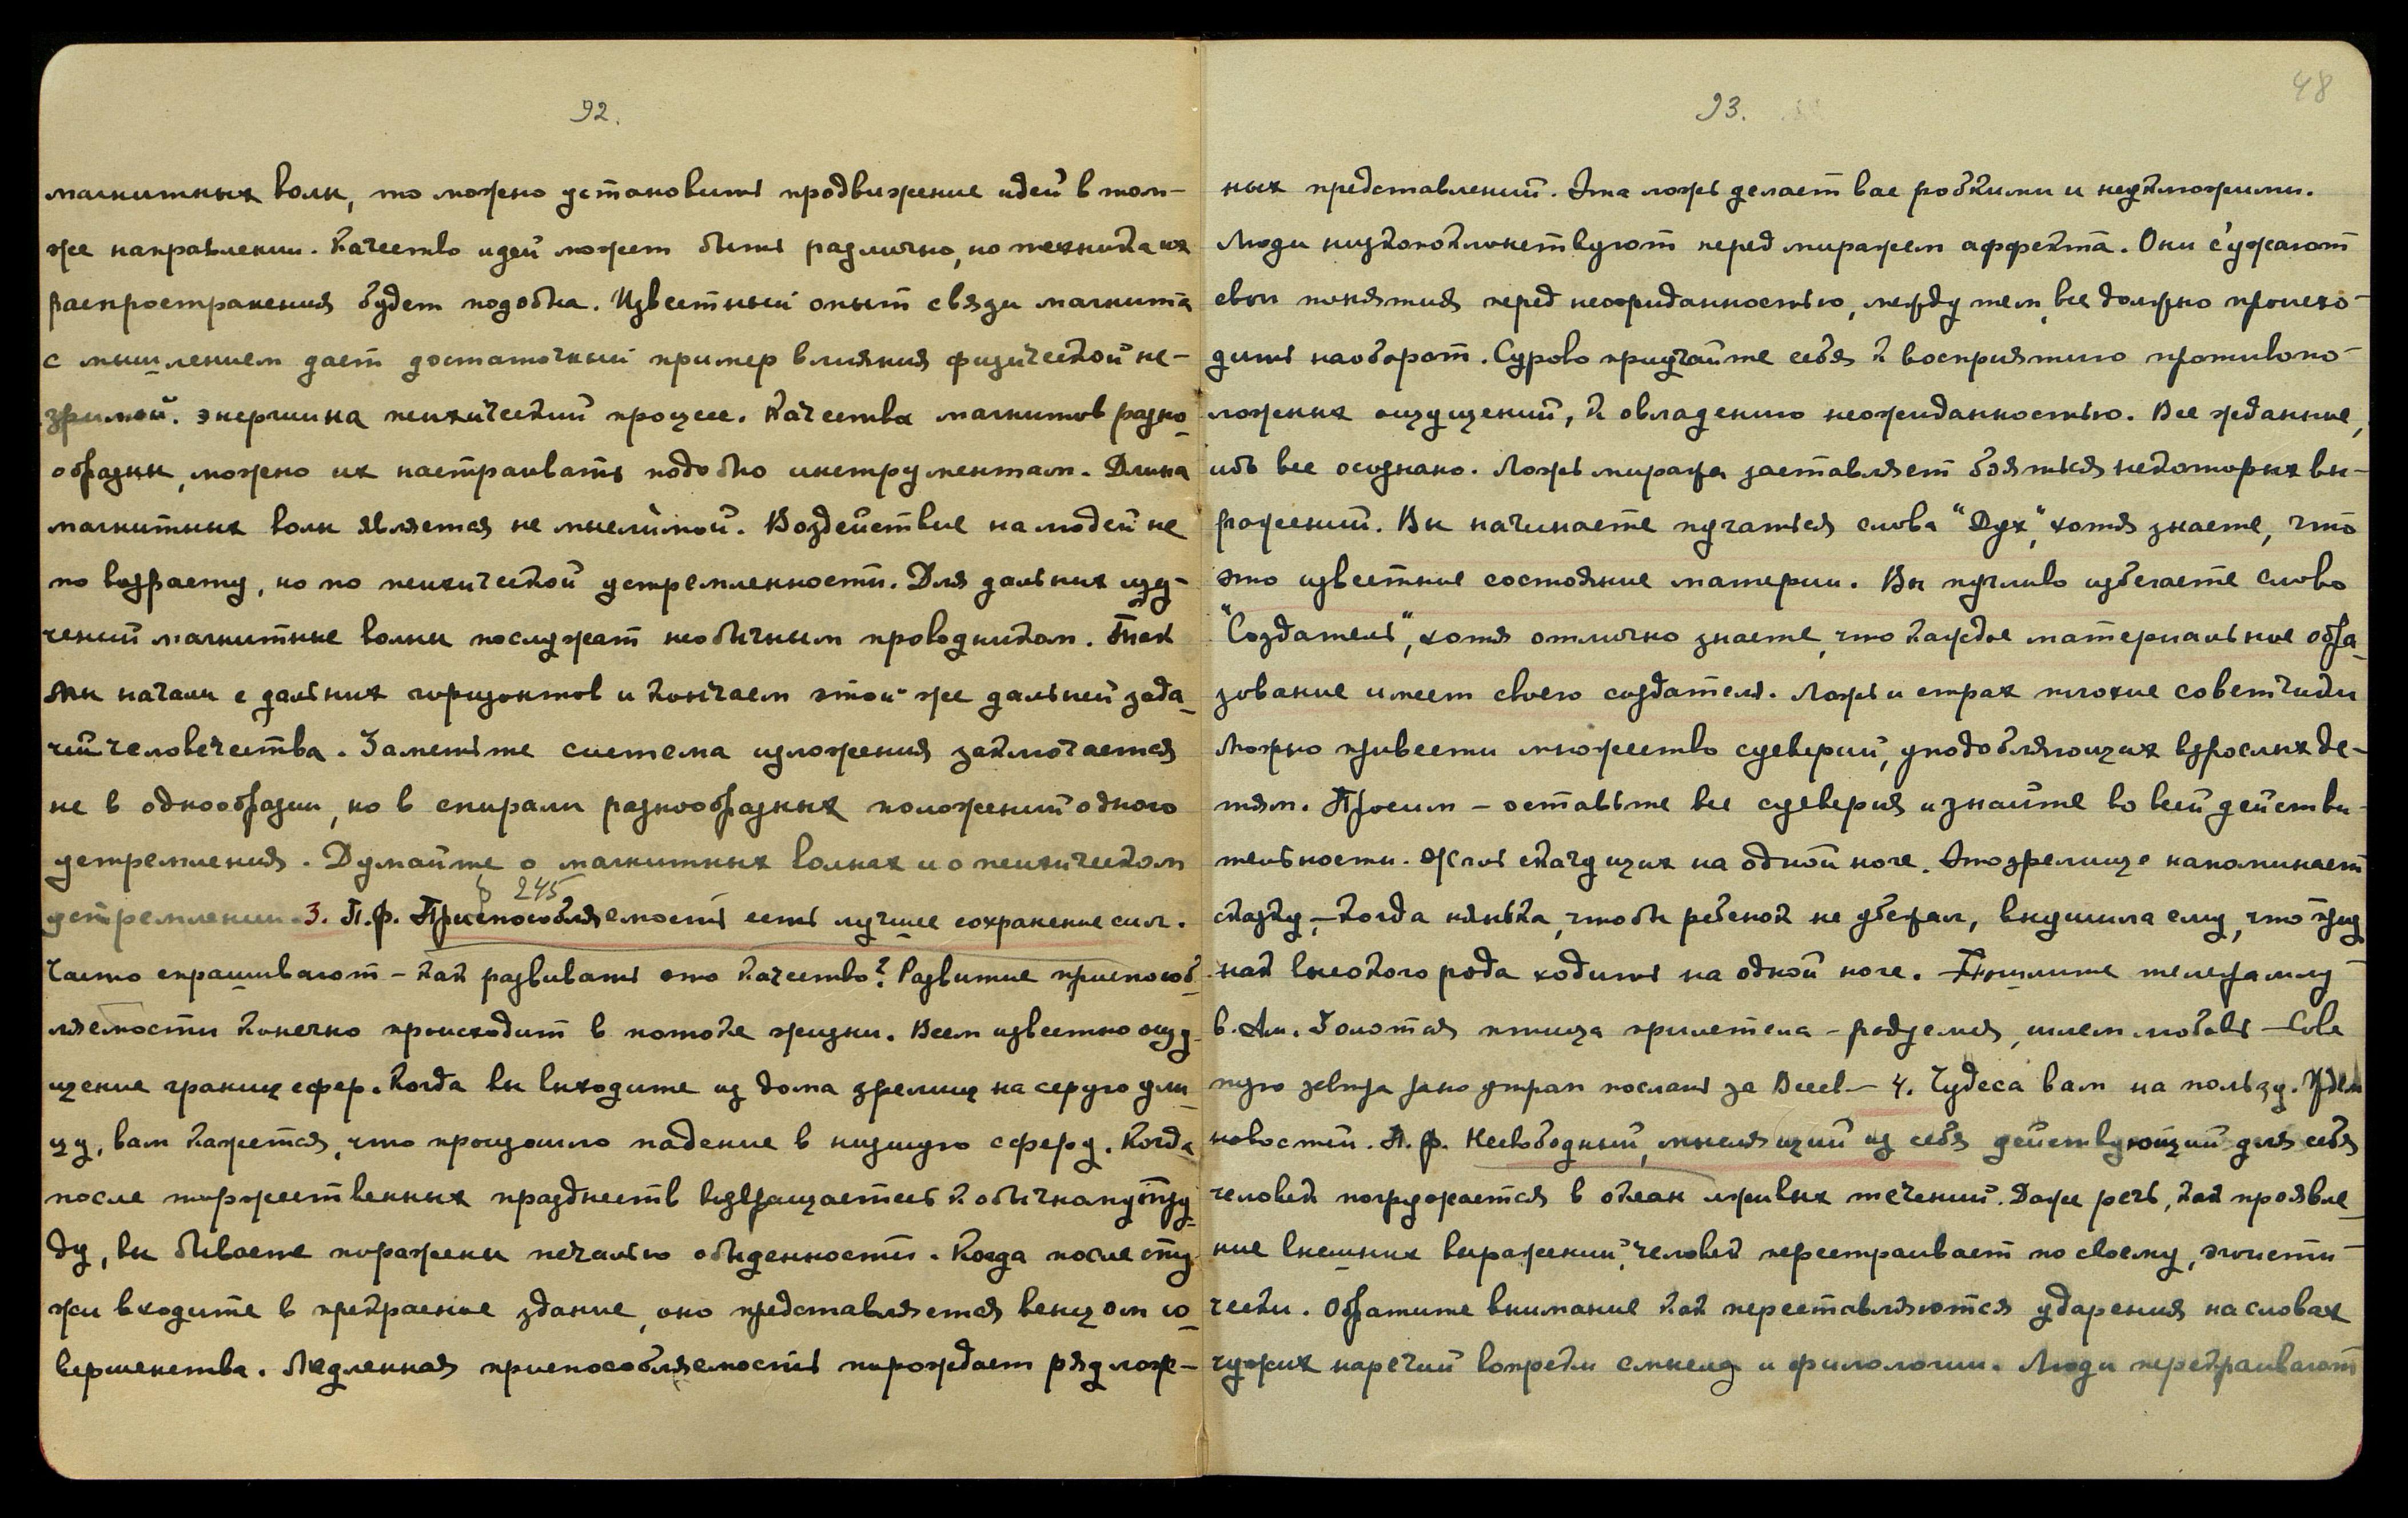 92.
магнитных волн, то можно установить продвижение идей в том-
же направлении. Качество идей может быть различно, но техника их
распространения будет подобна. Известный опыт связи магнита
с мышлением дает достаточный пример влияния физической не-
зримой энергии на психический процесс. Качества магнитов разно-
образны, можно их настраивать подобно инструментам. Длина
магнитных волн является не мыслимой. Воздействие на людей не
по возрасту, но по психической устремленности. Для дальних изу-
чений магнитные волны послужат необычным проводником. Так
мы начали с дальних горизонтов и кончаем этой же дальней зада-
чей человечества. Заметьте система изложения заключается
не в однообразии, но в спирали разнообразных положений одного
устремления. Думайте о магнитных волнах и о психическом
§ 245
устремлении. 3. П.Ф. Приспособляемость есть лучшее сохранение сил.
Часто спрашивают – как развивать это качество? Развитие приспособ-
ляемости конечно происходит в потоке жизни. Всем известно ощу-
щение границ сфер. Когда вы выходите из дома зрелищ на серую ули-
цу, вам кажется, что произошло падение в низшую сферу. Когда
после торжественных празднеств возвращаетесь к обычному тру-
ду, вы бываете поражены печалью обыденности. Когда после сту-
жи входите в прекрасное здание, оно представляется венцом со-
вершенства. Медленная приспособляемость порождает ряд лож-
93.
48
ных представлений. Эта ложь делает вас робкими и неуклюжими.
Люди низкопоклонствуют перед миражем аффекта. Они сужают
свои понятия перед неожиданностью, между тем, все должно происхо-
дить наоборот. Сурово приучайте себя к восприятию противопо-
ложных ощущений, к овладению неожиданностью. Все жданные,
ибо все осознано. Ложь миража заставляет бояться некоторых вы-
ражений. Вы начинаете пугаться слова "Дух", хотя знаете, что
это известное состояние материи. Вы пугливо избегаете слово
"Создатель", хотя отлично знаете, что каждое материальное обра-
зование имеет своего создателя. Ложь и страх плохие советчики
Можно привести множество суеверий, уподобляющих взрослых де-
тям. Просим – оставьте все суеверия и знайте во всей действи-
тельности. Жаль скачущих на одной ноге. Это зрелище напоминает
сказку, – когда нянька, чтобы ребенок не убежал, внушила ему, что приз-
нак высокого рода ходить на одной ноге. – Пошлите телеграмму
в Ам. Золотая птица прилетела – разделяя, шлем любовь – Сове
тую завтра рано утром послать за Всев – 4. Чудеса вам на пользу. Ждем
новостей. П.Ф. Несвободный, мыслящий из себя действующий для себя
человек погружается в океан лживых течений. Даже речь, как проявле-
ние внешних выражений, человек перестраивает по своему, эгоисти-
чески. Обратите внимание как переставляются ударения на словах
чужих наречий вопреки смыслу и филологии. Люди перекраивают